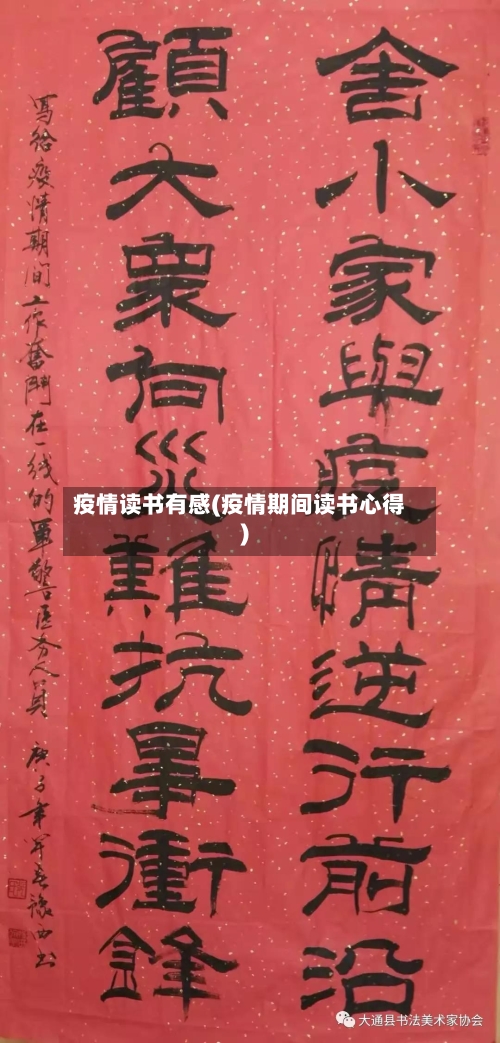 舍小家與疫情逆行前沿
顧大衆向災難抗衝鋒
写给疫情期间工作奮鬥在一线的軍警医务人員 庚子年
疫情读书有感(疫情期间读书心得
)
大通县书法美术家协会